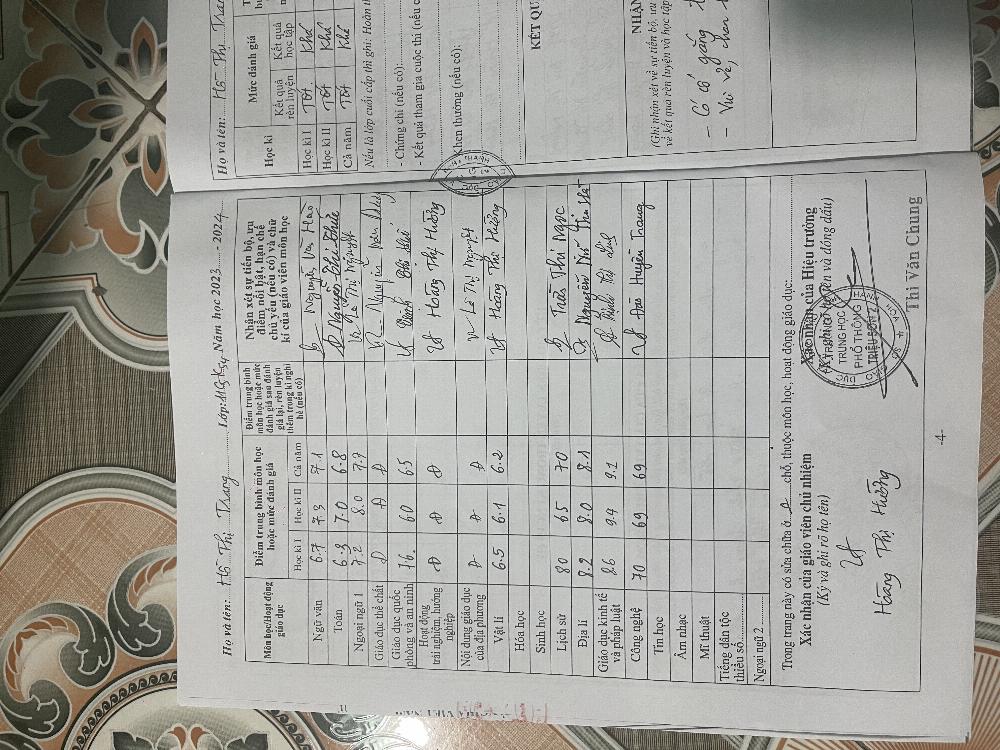 Họ và tên: Hồ Thị Trang Lớp: 11G,K54 Năm học 2023 - 2024
Môn học/Hoạt động giáo dục
Điểm trung bình môn học hoặc mức đánh giá
Học kì I Học kì II Cả năm
Điểm trung bình môn học hoặc mức đánh giá sau đánh giá lại, rèn luyện thêm trong kì nghỉ hè (nếu có)
Nhận xét sự tiến bộ, ưu điểm nổi bật, hạn chế chủ yếu (nếu có) và chữ kí của giáo viên môn học
Ngữ văn 6.7 7.3 7.1 Nguyễn Văn
Toán 6.3 7.0 6.8 Nguyễn
Ngoại ngữ 1 7.2 8.0 7.7 Lê Thị Nguyệt
Giáo dục thể chất Đ Đ Đ Nguyễn Văn
Giáo dục quốc phòng và an ninh 76. 60 65
Hoạt động trải nghiệm, hướng nghiệp Đ Đ Đ Hoàng Thị Hường
Nội dung giáo dục của địa phương Đ Đ Đ Lê Thị Nguyệt
Vật lí 6.5 6.1 6.2 Hoàng Thị Hường
Hóa học
Sinh học
Lịch sử 80 65 70 Thị Ngọc
Địa lí 8.2 8.0 8.1 Nguyễn
Giáo dục kinh tế và pháp luật 86 94 9.1
Công nghệ 70 69 69 Huyền Trang
Tin học
Âm nhạc
Mĩ thuật
Tiếng dân tộc thiểu số
Ngoại ngữ 2
Trong trang này có sửa chữa ở chỗ, thuộc môn học, hoạt động giáo dục:
Xác nhận của giáo viên chủ nhiệm
(Ký và ghi rõ họ tên)
Hoàng Thị Hường
Xác nhận của Hiệu trưởng
(Ký, ghi rõ họ tên và đóng dấu)
TRƯỜNG
TRUNG HỌC
PHỔ THÔNG
TRIỆU SƠN 2
Thi Văn Chung
-4-
Họ và tên: Hồ Thị Trang
Học kì
Mức đánh giá
Kết quả rèn luyện Kết quả học tập
Học kì I Tốt Khá
Học kì II Tốt Khá
Cả năm Tốt Khá
Nếu là lớp cuối cấp thì ghi: Hoàn
- Chứng chỉ (nếu có):
- Kết quả tham gia cuộc thi (nếu
Khen thưởng (nếu có):
KẾT QU
NHẬN
(Ghi nhận xét về sự tiến bộ, ưu
về kết quả rèn luyện và học tập
- Có cố gắng
- Vui vẻ, chan